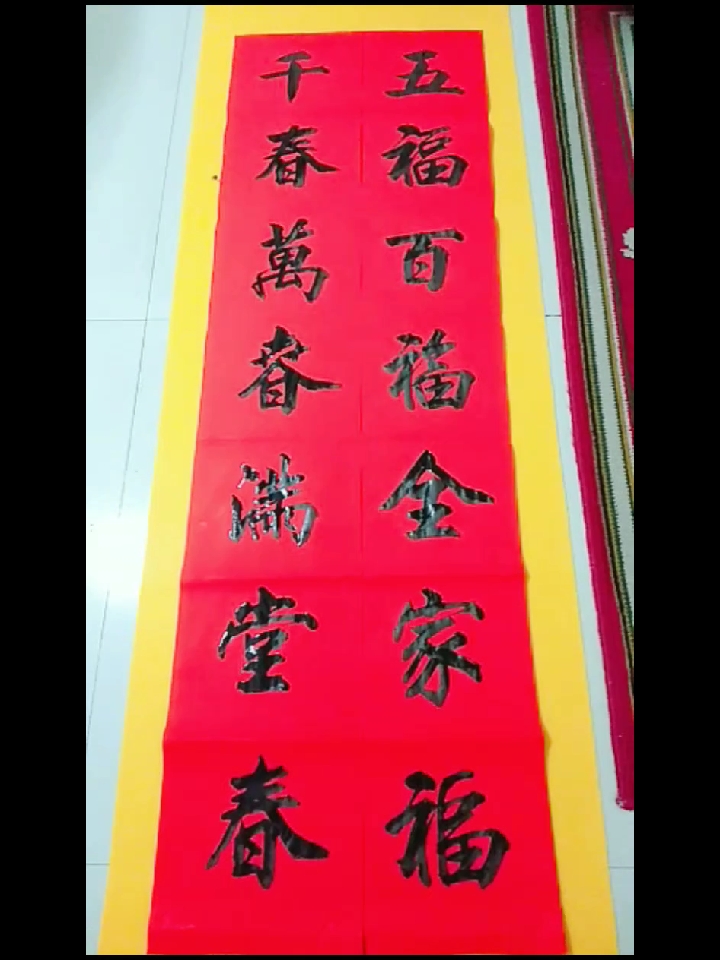 五福百福全家福
千春萬春滿堂春